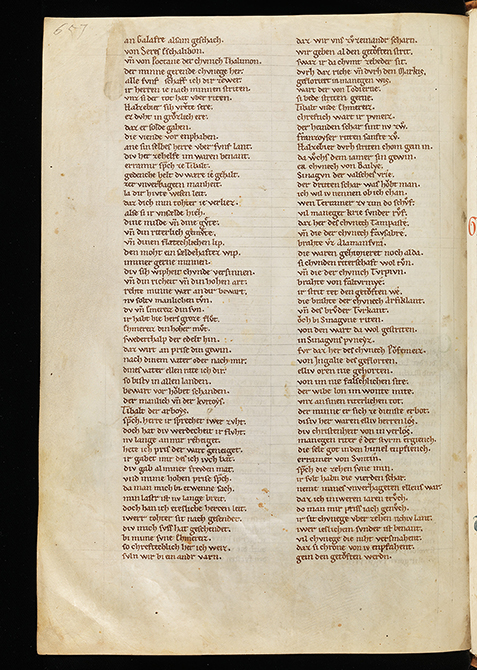 657
an Galafre alsam geschach.
von Seres Eschalibon.
vñ von
der minne gerende chunege her.
alle funf schaff ich dir zewer.
ir herren ie nach minnen striten.
unz si der tot hat uber riten.
Halzebier sih vrete sere.
er duht in grozlich ere.
daz er solde haben.
die viende vor enphaben.
ane sin selbes herre uber funf lant.
div her zehelfe im waren benant.
erramir sprach ze Tibalt.
gedenche helt du wære ie gehalt.
zer unverzagten manheit.
la dir hivte wesen leit.
daz dich min tohter ie verliez.
also si ir unselde hiez.
dine milde vñ dine gvte.
vñ din riterlich gemvte.
vñ dinen flætechlichen lip.
den moht ein seldehaftez wip.
immer gerne minnen.
div sih wipheit chunde versinnen.
vñ din richeit vñ din hohen art.
rehte minne was an dir bewart.
nv soltv manlichen tvn.
dv vñ Ehmerez din svn.
ir habt hie hers groze flvt.
Ehmerez din hoher mvt.
swederthalp der edele hin.
daz wirt an prise din gewin.
nach dinem vater oder nach mir.
dines vater ellen rate ich dir.
so bistv in allen landen.
bewart vor hohet schanden.
der manlich vñ der kvrtoys.
Tibalt der arboys.
sprach. herre ir sprechet iwer zvht.
doch hat div werdecheit ir flvht.
nv lange an mir rebeiget.
hete ich pris der wart geneiget.
ir gabet mir des ich vch bat.
div gab al miner frevden mat.
vnd mime hohen prise sprach.
da man mich bi etwenne sach.
min laster ist nv lange breit.
doch han ich etesliche herzen leit.
iwer tohter sit nach gesendet.
div mich svs hat geschendet.
bi mime svne Ehmerez.
so ehrefteclich her ich wez.
svln wir bi ein ander varn.
daz wir vns vzzeinander scharn.
wir gehen al den grozen strit.
swaz ir da chvmt zebeder sit.
dvrh daz riche vñ dvrh den Markis.
geflorieret in manegen wis.
wart der von Todierne.
si bede striten gerne.
Tibalt vnde Ehmerez.
ehreftich wart ir pvneiz.
der heiden schar sint nv zwo.
franzoyser riten sanfte zvo.
Halzebier dvrh striten chom gein in.
da wehs dem iamer sin gewin.
ez chvnech von Bailye.
Sinagvn der valsches vrie.
der dritten schar was hovbt man.
ich wil iv nennen ob ich chan.
wen Terramer zv zim do schvf.
vil maneger krie sunder rvf.
daz her des chvnech Tampaste.
vñ die der chvnech favsabre.
brahte vz alamansvra.
die waren gehovret noch alda.
si chunden riterschaft wol tvn.
vñ die der chvnech Tvrpivn.
brahte von falturmye.
ir strit tet den getovften we.
die brahte der chvnech Arfiklant.
vñ des brvder Tvrkant.
ovh bi Sinagvne riten.
von den wart da wol gestriten.
in Sinagvns pvneyz.
fvr daz her des chvnech Pohereiz.
von Ingalie des geflorten.
elliv oren nie gehorten.
von im nie falschlichen site.
der wibe lon im wonte mite.
vnz an sinen riterlichen tot.
der minne er sich ze dienste erbot.
disiv her waren elliv herrenlos.
div christenheit von in verlos.
manegen riter e der sturm ergiench.
die sele got inden himel enpfiench.
erramer von Svntin.
sprach die zehen svne min.
ir svlt haben die vierden schar.
nemt mines unverzagetten ellens war
daz ich in iweren iaren truoch.
do man mir priss iach genvch.
ir sit chunege vber zehen richiv lant.
iwer ieslichem sunder ist benant.
vil chvnege die niht versmahent.
daz si chrone von iv enpfahent.
gein den getovften werdn.